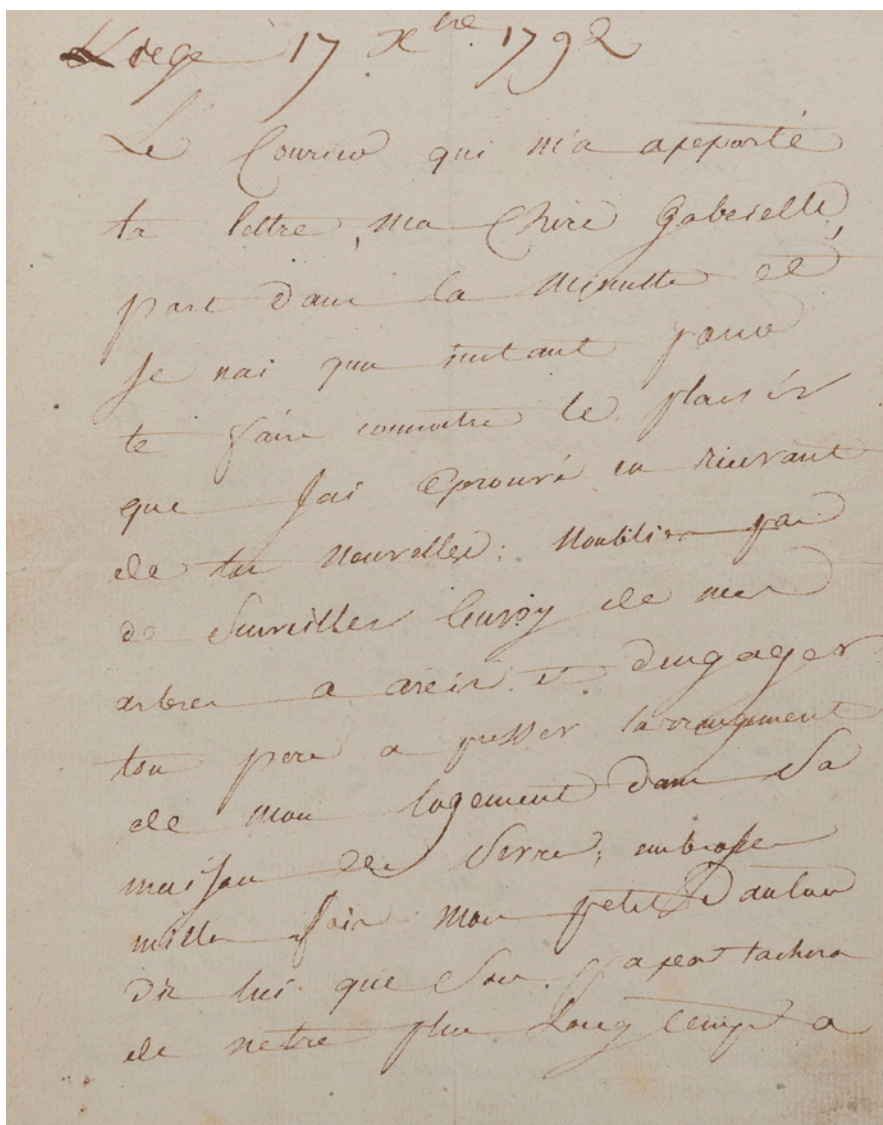 Liege 17 Xbre 1792
Le Courier qui m'a apporté
ta lettre, ma Chere Gabrielle,
part dans la minutte et
je nai quun instant pour
te faire connoitre le plaisir
que Jai Eprouvé en recevant
de tes nouvelles. Noublies pas
de Surveiller lenvoy de mes
arbres a arcis et dengager
ton pere a presser larrangement
de mon logement dans Sa
maison de Sevre; embrasse
mille fois mon petit danton
Dis lui que Son papa tachera
de netre plus Long temps a